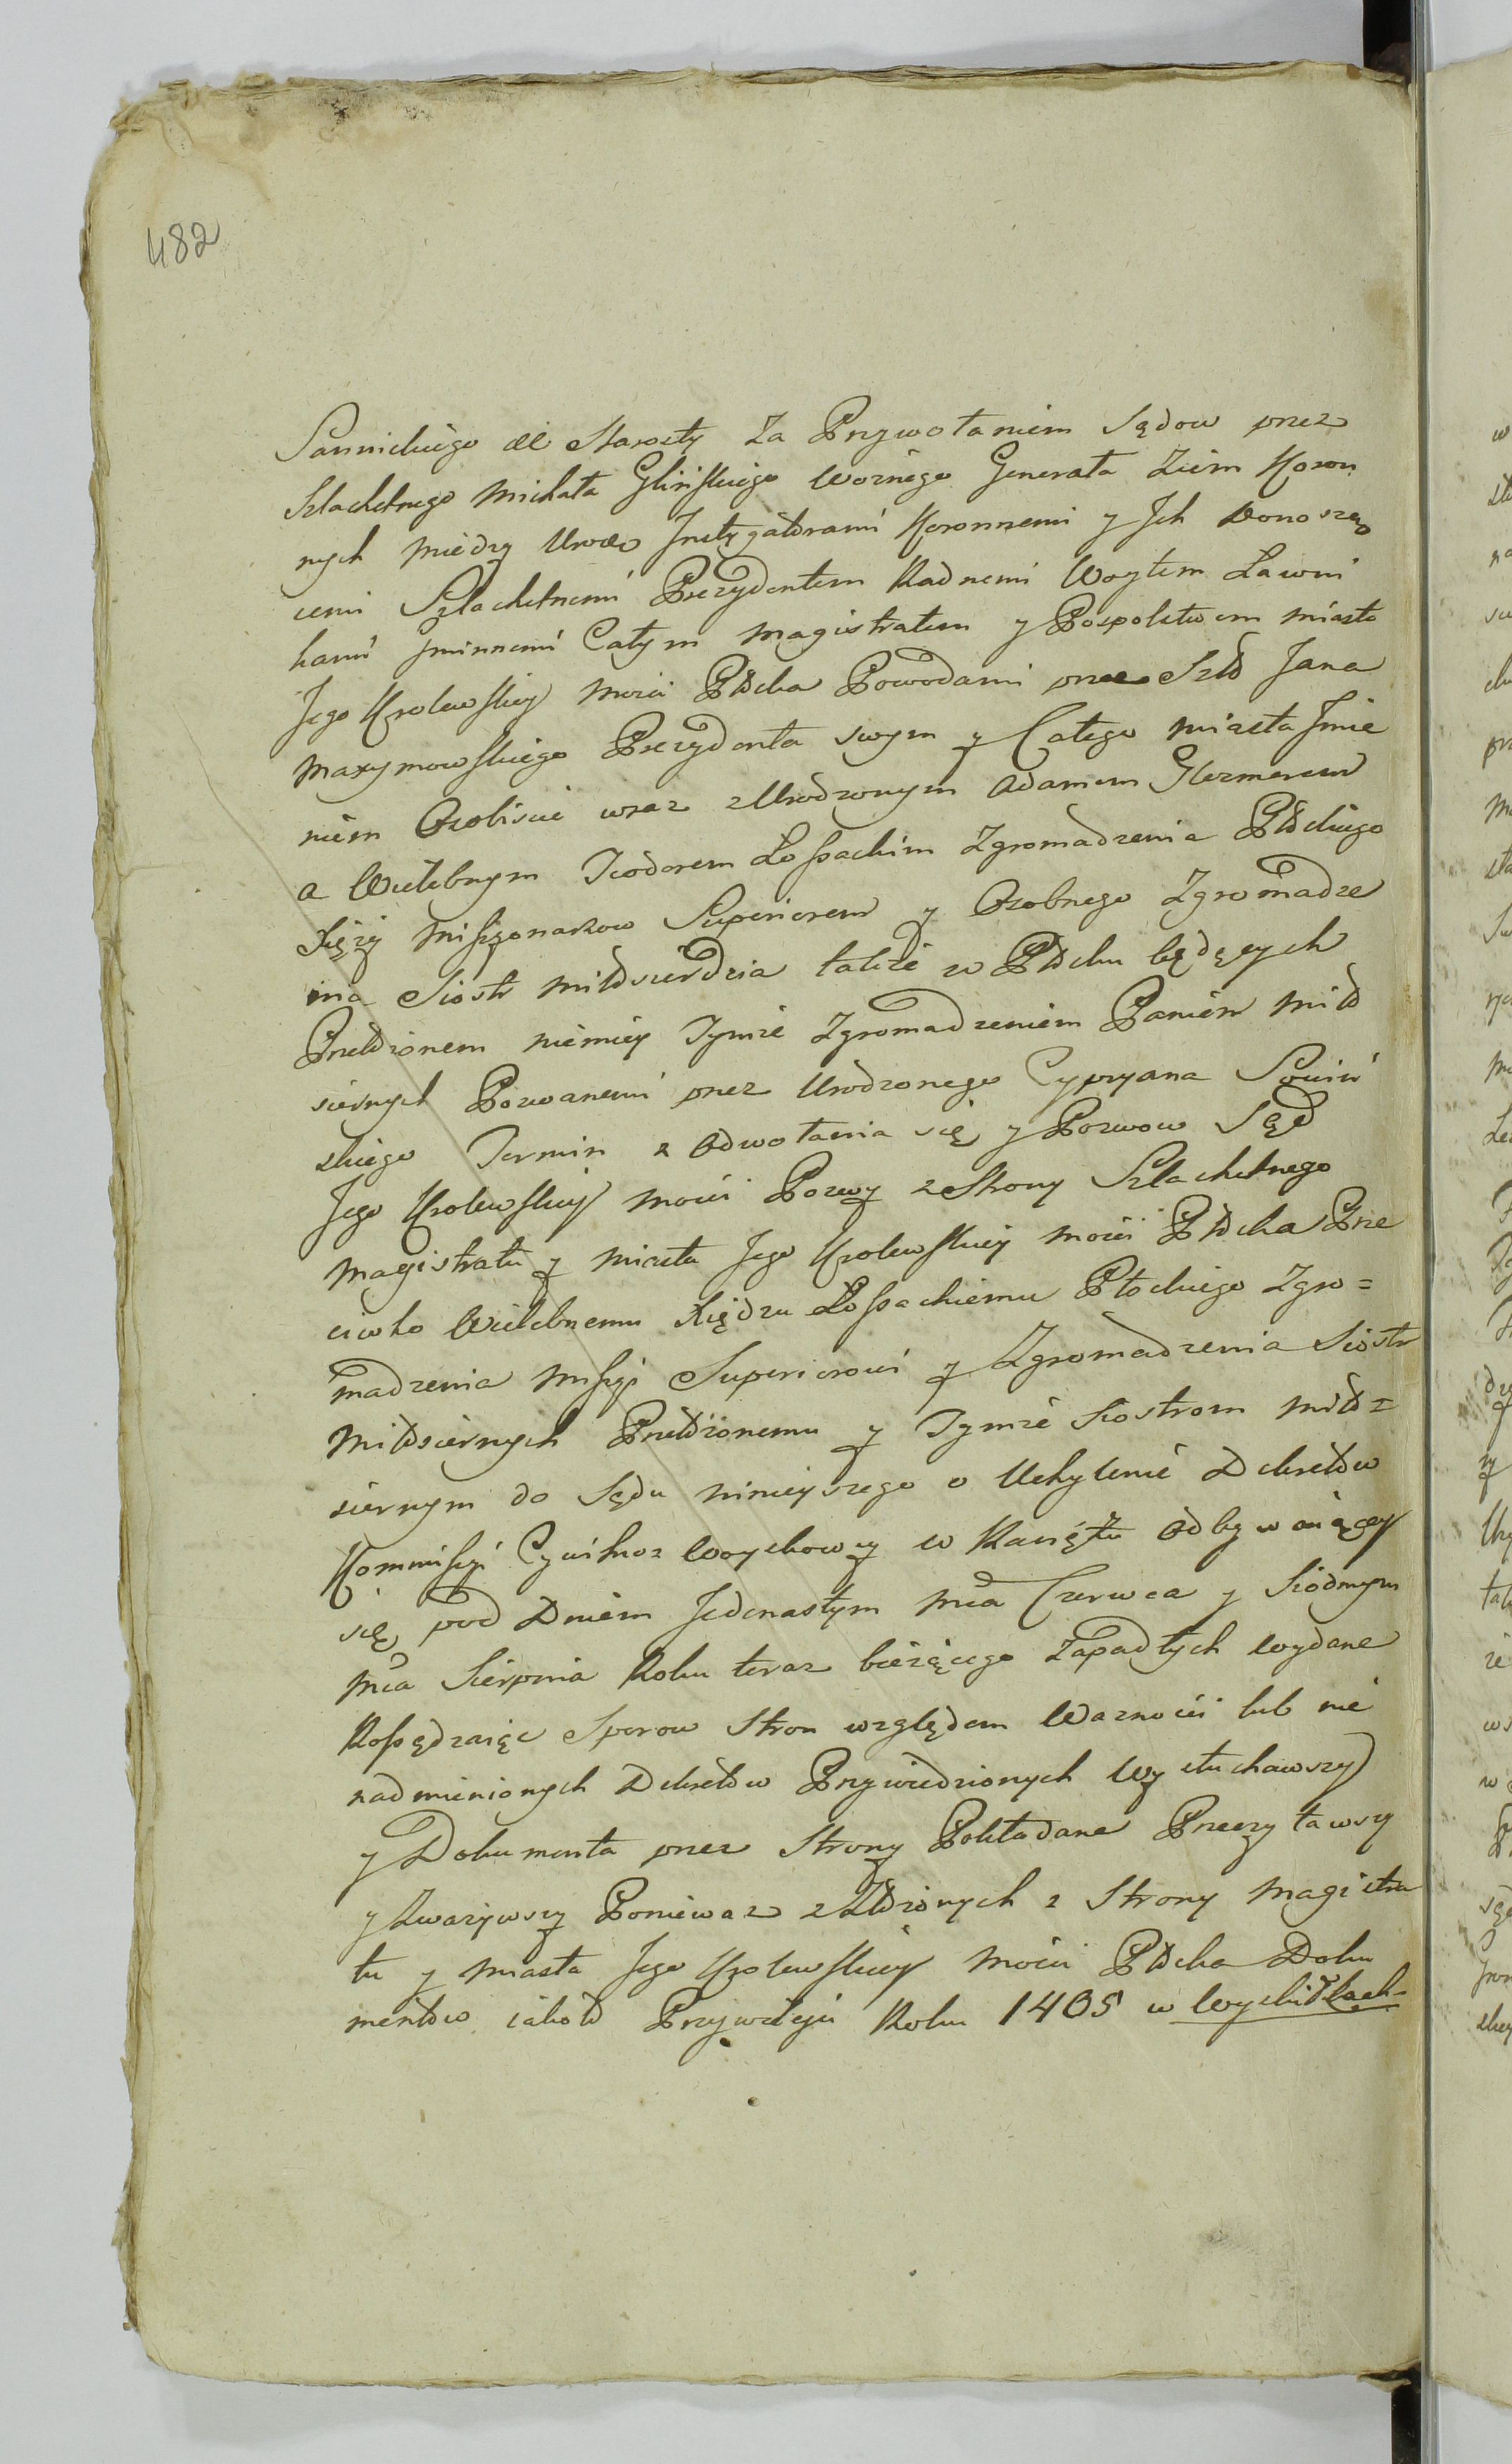 482
Sannickiego etc Starosty Za Przywołaniem Sądow przez
Szlachetnego Michała Glinskiego Woznego Generała Ziem Koron
nych między Urod Instygatorami Koronnemi y Ich Donoszą
cemi Szlachetnemi Prezydentem Radnemi Woytem Ławni
kami Gminnemi Całym Magistratem y Pospolstwem Miasta
Jego Krolewskiey Mości Płocka Powodami przez Szl Jana
Maxymowskiego Prezydenta swym y Całego Miasta Imie
niem Osobiscie wraz z Urodzonym Adamem
a Wielebnym Teodorem Lossackim Zgromadzenia Płockiego
Xięży Missyonarzow Superiorem y Osobnego Zgromadze
nia Siostr Miłosierdzia także w Płocku będących
Przełożonem niemiey Tymże Zgromadzeniem Panien Miło
siernych Pozwanemi przez Urodzonego Cypryana Sowiń
skiego Termin z Odwołania się y Pozwow Sąd
Jego Krolewskiey Mości Pozwy z Strony Szlachetnego
Magistratu y Miasta Jego Krolewskiey Mości Płocka Prze
ciwko Wielebnemu Xiędzu Lossackiemu Płockiego Zgro=
madzenia Missyi Superiorowi y Zgromadzenia Siostr
Miłosiernych Przełożonemu y Tymże Siostrom Miło=
siernym do Sądu ninieyszego o Uchylenie Dekretow
Kommissyi Cywilno Woyskowey w Raciążu Odbywaiącey
się pod Dniem Jedenastym Mca Czerwca y Siodmym
Mca Sierpnia Roku teraz bieżącego Zapadłych wydane
Rossądzaiąc Sporow Stron względem Ważności lub nie
nadmienionych Dekretow Przywiedzionych Wysłuchawszy
y Dokumenta przez Strony Pokładane Przeczytawszy
y Zważywszy Ponieważ z Złożonych z Strony Magistra
tu y Miasta Jego Krolewskiey Mości Płocka Doku
mentow iakoto Przywileju Roku 1405 w